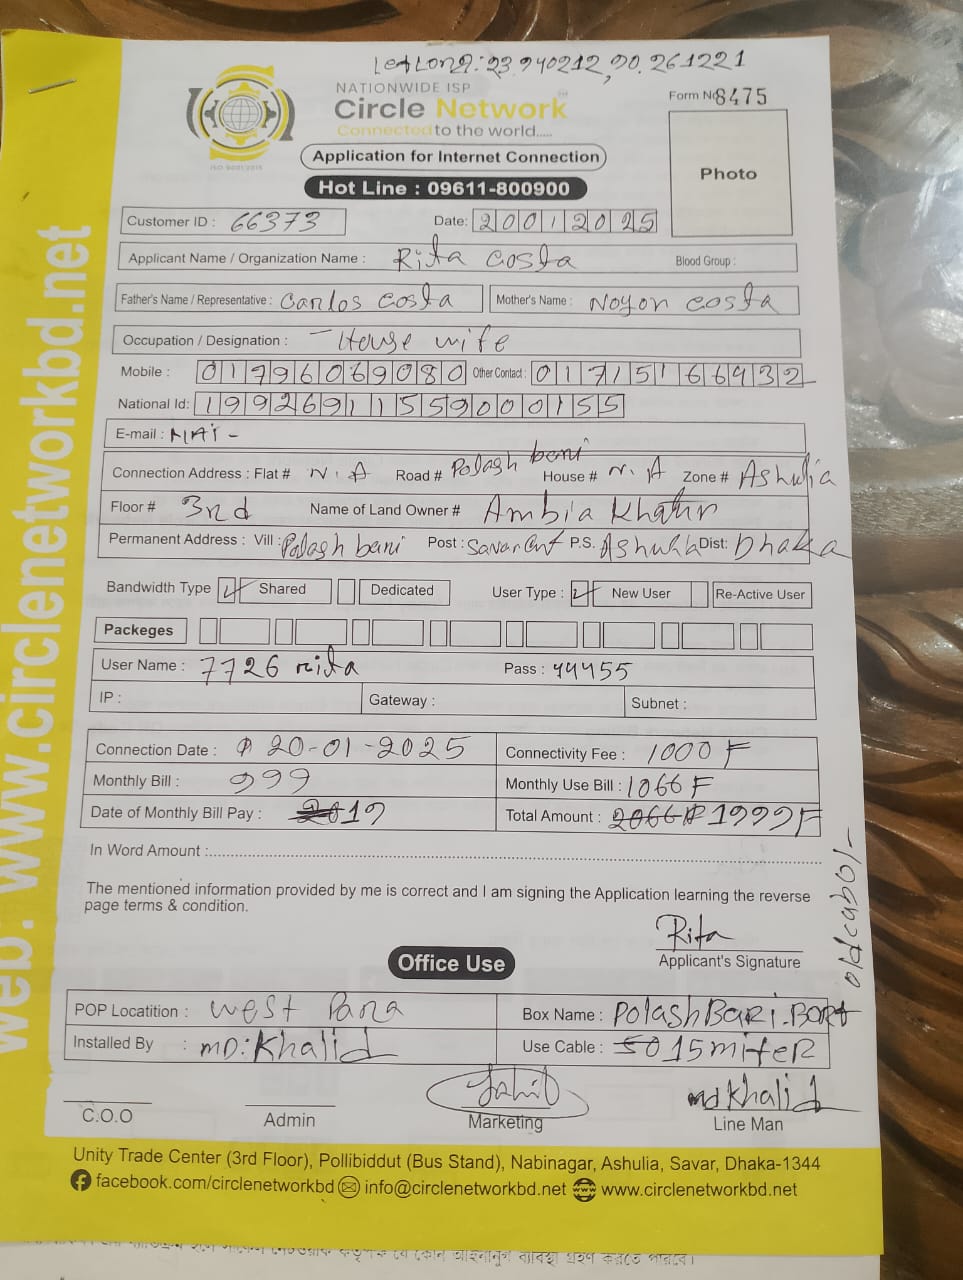 Let Long: 23.940212, 90.261221
NATIONWIDE ISP
Circle Network
Connected to the world.....
ISO 9001:2015
Form No 8475
Application for Internet Connection
Hot Line : 09611-800900
Photo
Customer ID : 66373 Date: 20012025
Applicant Name / Organization Name : Rita costa Blood Group :
Father's Name / Representative : Carlos costa Mother's Name : Noyon costa
Occupation / Designation : House wife
Mobile : 01796069080 Other Contact : 01715166932
National Id: 19926911559000155
E-mail :
Connection Address : Flat # N.A Road # Polash bari House # N.A Zone # Ashulia
Floor # 3rd Name of Land Owner # Ambia Khatun
Permanent Address : Vill : Palash bari Post : Savar Cnt P.S. Ashulia Dist: Dhaka
Bandwidth Type Shared Dedicated User Type : New User Re-Active User
Packeges
User Name : 7726 rita Pass : 44455
IP : Gateway : Subnet :
Connection Date : 20-01-2025 Connectivity Fee : 1000 F
Monthly Bill : 999 Monthly Use Bill : 1066 F
Date of Monthly Bill Pay : 19 Total Amount : 2066 1999F
In Word Amount :
The mentioned information provided by me is correct and I am signing the Application learning the reverse
page terms & condition.
old cabol-
Rita
Applicant's Signature
Office Use
POP Locatition : West Para Box Name : PolashBari.BORT
Installed By : MD:Khalid Use Cable : 50 15miteR
md Khalid
C.O.O Admin Marketing Line Man
Unity Trade Center (3rd Floor), Pollibiddut (Bus Stand), Nabinagar, Ashulia, Savar, Dhaka-1344
facebook.com/circlenetworkbd info@circlenetworkbd.net www.circlenetworkbd.net
web: www.circlenetworkbd.net